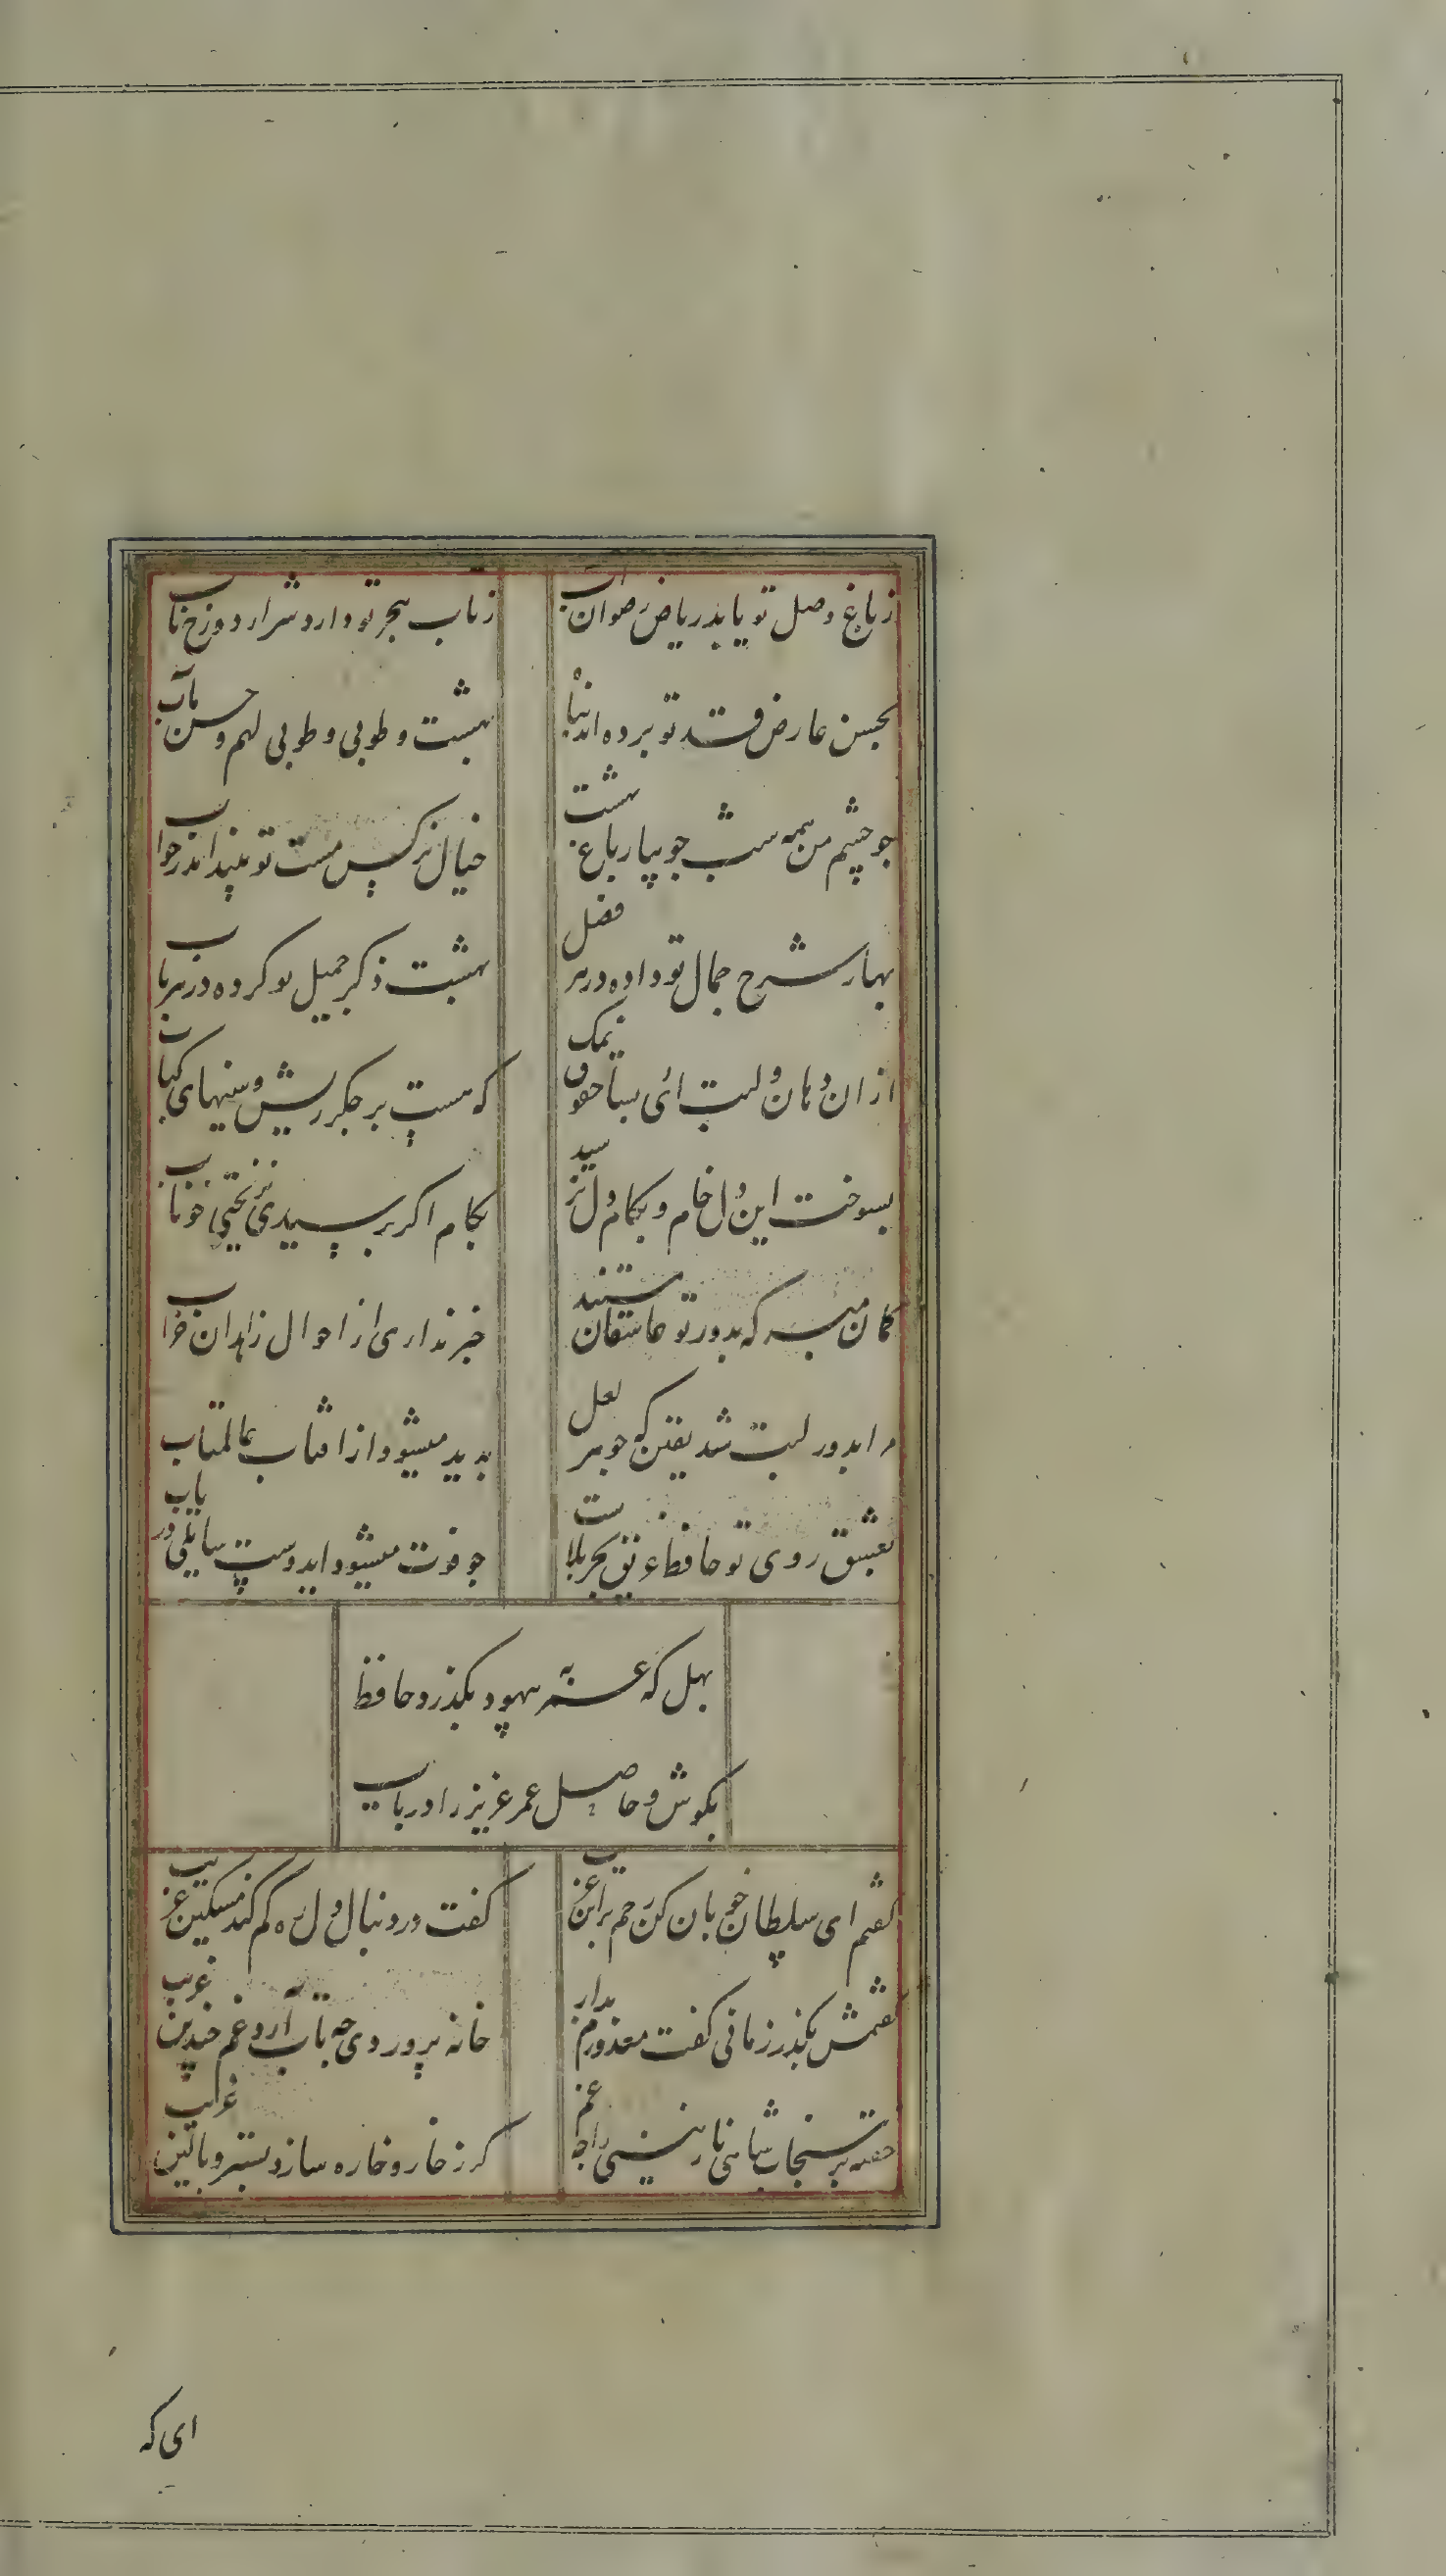 زباغ وصل تو یابد ریاض رضوان آب
زتاب هجر تو دارد شرار دوزخ تاب
بحسن عارض و قد تو برده اند پناه
بهشت و طوبی و طوبی لهم و حسن مآب
جو چشم من همه شب جویبار باغ بهشت
خیال نرکس مست تو بیند اندر خواب
بهار شرح جمال تو داده در هر فصل
بهشت ذکر جمیل تو کرده در هر باب
ازان دهان و لبت ائی بسا حقوق نمک
که هست بر جکر ریش و سینهای کباب
بسوخت این دل خام و بکام دل نرسید
بکام اکر برسیدی نریختی خوناب
کمان مبر که بدور تو عاشقان مستند
خبر نداری از احوال زاهدان خراب
مرا بدور لبت شد یقین که جوهر لعل
بدید میشود از افتاب عالمتاب
بعشق روی تو حافظ غریق بحر بلاست
جو فوت میشود ایدوست سایلی دریاب
بهل که عمر به بیهوده بکذرد حافظ
بکوش و حاصل عمر عزیز را دریاب
کفتم ای سلطان خوبان کن رحم بر این غریب
کفت در دنبال دل ره کم کند مسکین غریب
کفتمش بکذر زمانی کفت معذورم بدار
خانه پروردی چه تاب آرد غم چندین غریب
خفته بر سنجاب شاهی نازنینی را چه غم
کر ز خار و خاره سازد بستر و بالین غریب
ای که